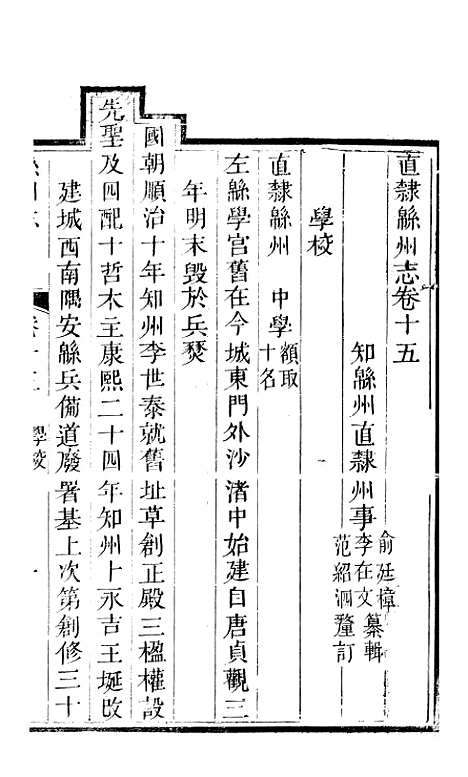 直隸緜州志卷十五
知緜州直隸州事
俞廷樟
李在文 纂輯
范紹泗 釐訂
學校
直隸緜州 中學 額取十名
左緜學宮舊在今城東門外沙渚中始建自唐貞觀三
年明末毀於兵燹
國朝順治十年知州李世泰就舊址草創正殿三楹權設
先聖及四配十哲木主康熙二十四年知州卜永吉王埏改
建城西南隅安緜兵備道廢署基上次第創修三十
學校